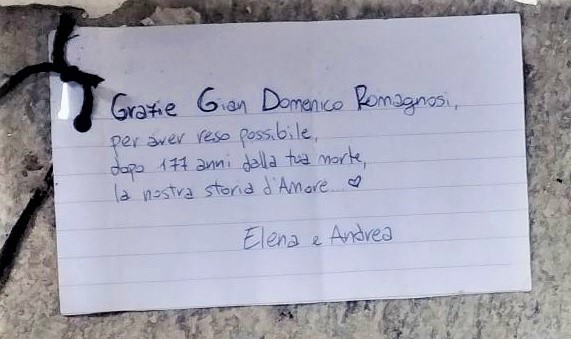 Grazie Gian Domenico Romagnosi,
per aver reso possibile,
dopo 177 anni dalla tua morte,
la nostra storia d'Amore... ♡
Elena e Andrea